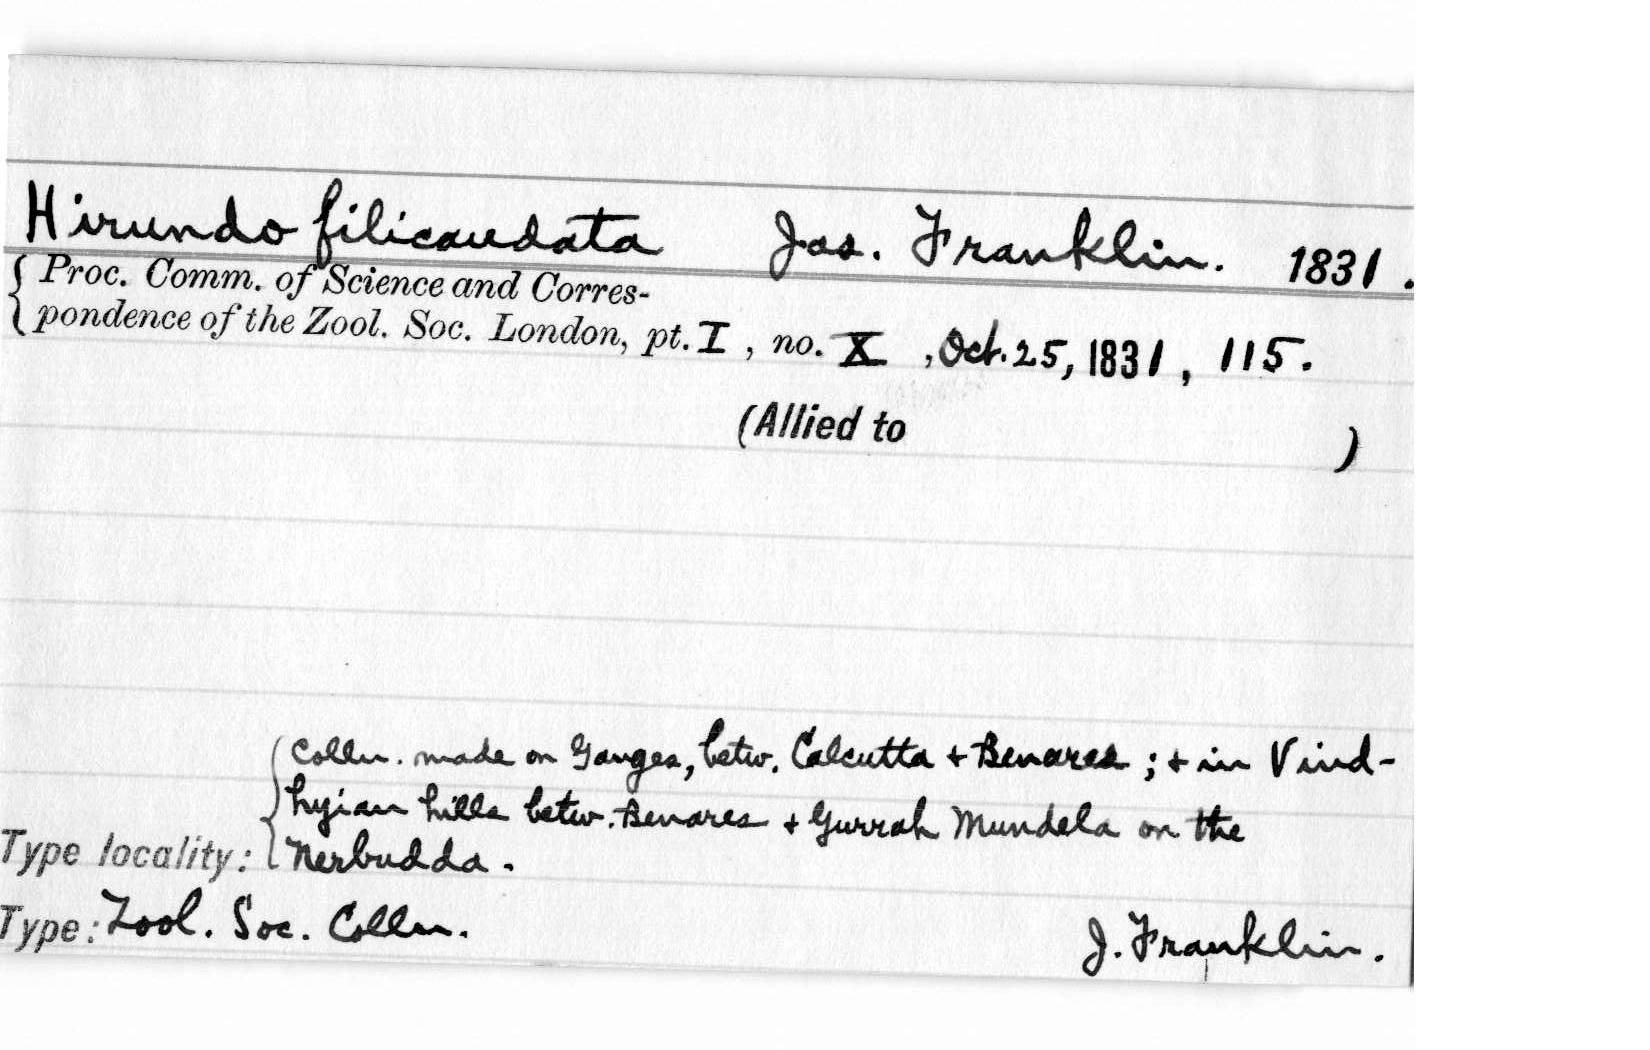 Hirundo filicaudata Jas. Franklin. 1831.
Proc. Comm. of Science and Corres-
pondence of the Zool. Soc. London, pt. I, no. X, Oct. 25, 1831, 115.
(Allied to )
Colln. made on Ganges, betw. Calcutta + Benares; + in Vind-
hyian hills betw. Benares + Gurrah Mundela on the
Type locality: Nerbudda.
Type: Zool. Soc. Colln. J. Franklin.